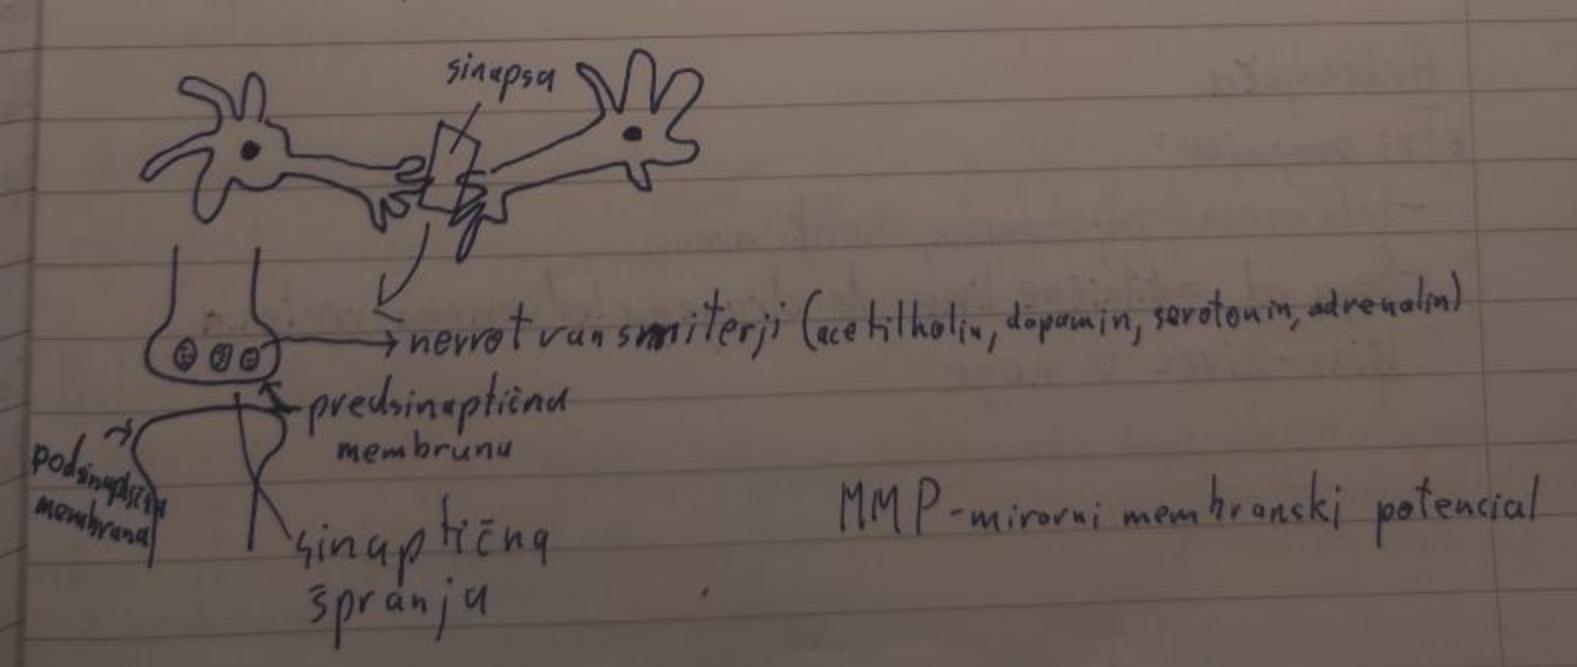 sinapsa
nevrotransmiterji (acetilholin, dopamin, serotonin, adrenalin)
predsinaptična
membrana
podsinaptična
membrana
sinaptična
špranja
MMP-mirovni membranski potencial